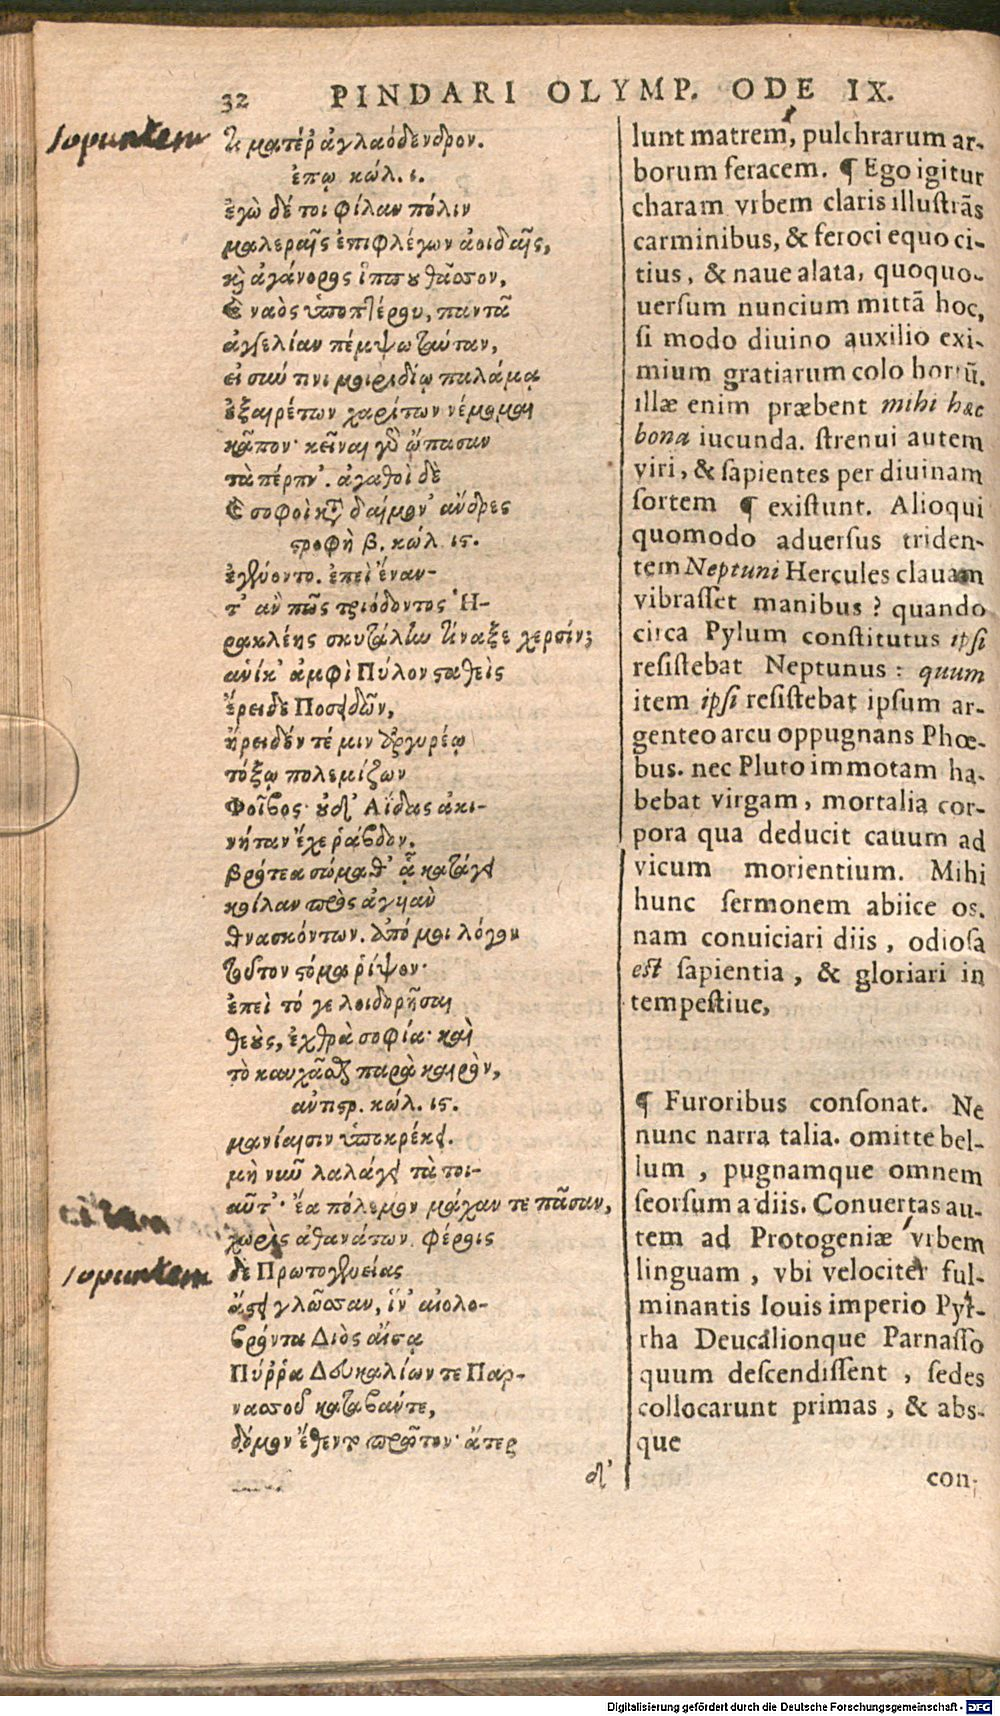 32 PINDARI OLYMP. ODE IX.
ματέρ᾽ ἀγλαόδενδρον.
ἐπῳ κώλ. ι.
ἐγὼ δέ τοι φίλαν πόλιν
μαλεραῖς ἐπιφλέγων ἀοιδαῖς,
καὶ ἀγάνορος ἵππου θᾶσσον,
καὶ ναὸς ὑποπτέρου, παντᾶ
ἀγγελίαν πέμψω ταύταν,
εἰ σύν τινι μοιριδίῳ παλάμᾳ
ἐξαιρέτων χαρίτων νέμομαι
κᾶπον· κεῖναι γὰρ ὤπασαν
τὰ τέρπν᾽. ἀγαθοὶ δὲ
καὶ σοφοὶ κτ δαίμον᾽ ἄνδρες
στροφὴ β. κώλ. ις.
ἐγένοντο. ἐπεὶ ἔναν-
τ᾽ ἂν πῶς τριόδοντος Ἡ-
ρακλέης σκυτάλαν τίναξε χερσίν;
ἁνίκ᾽ ἀμφὶ Πύλον σταθεὶς
ἔρειδε Ποσειδῶν,
ἤρειδέν τέ μιν ἀργυρέῳ
τόξῳ πολεμίζων
Φοῖβος· οὐδ᾽ Ἀΐδας ἀκι-
νήταν ἔχε ῥάβδον,
βρότεα σώμαθ᾽ ᾇ κατάγει
κοίλαν πρὸς ἀγυιὰν
θνασκόντων. ἀπό μοι λόγον
τοῦτον στόμα ῥίψον·
ἐπεὶ τό γε λοιδορῆσαι
θεοὺς, ἐχθρὰ σοφία· καὶ
τὸ καυχᾶσθαι παρὰ καιρὸν,
ἀντιστρ. κώλ. ις.
μανίαισιν ὑποκρέκει.
μὴ νῦν λαλάγει τὰ τοι-
αῦτ᾽· ἔα πόλεμον μάχαν τε πᾶσαν,
χωρὶς ἀθανάτων. φέροις
δὲ Πρωτογενείας
ἄστει γλῶσσαν, ἵν᾽ αἰολο-
βρόντα Διὸς αἴσᾳ
Πύῤῥα Δευκαλίων τε Παρ-
νασσοῦ καταβάντε,
δόμον ἔθεντο πρῶτον· ἄτερ
δ᾽
lunt matrem, pulchrarum ar-
borum feracem. ¶ Ego igitur
charam vrbem claris illustrãs
carminibus, & feroci equo ci-
tius, & naue alata, quoquo-
uersum nuncium mittã hoc,
si modo diuino auxilio exi-
mium gratiarum colo hortũ.
illæ enim præbent mihi hæc
bona iucunda. strenui autem
viri, & sapientes per diuinam
sortem ¶ existunt. Alioqui
quomodo aduersus triden-
tem Neptuni Hercules clauam
vibrasset manibus? quando
circa Pylum constitutus ipsi
resistebat Neptunus: quum
item ipsi resistebat ipsum ar-
genteo arcu oppugnans Phœ-
bus. nec Pluto immotam ha-
bebat virgam, mortalia cor-
pora qua deducit cauum ad
vicum morientium. Mihi
hunc sermonem abiice os.
nam conuiciari diis, odiosa
est sapientia, & gloriari in
tempestiue,
¶ Furoribus consonat. Ne
nunc narra talia. omitte bel-
lum, pugnamque omnem
seorsum a diis. Conuertas au-
tem ad Protogeniæ vrbem
linguam, vbi velociter ful-
minantis Iouis imperio Pyr-
rha Deucalionque Parnasso
quum descendissent, sedes
collocarunt primas, & abs-
que
con-
Digitalisierung gefördert durch die Deutsche Forschungsgemeinschaft - DFG